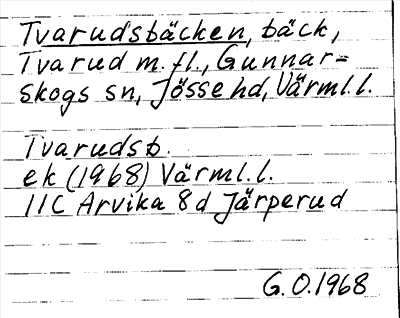 Tvarudsbäcken, bäck,
Tvarud m.fl., Gunnar=
Skogs sn, Jösse hd, Värml.l.
Tvarudsb.
ek (1968) Värml.l.
11C Arvika 8d Järperud
G.O.1968